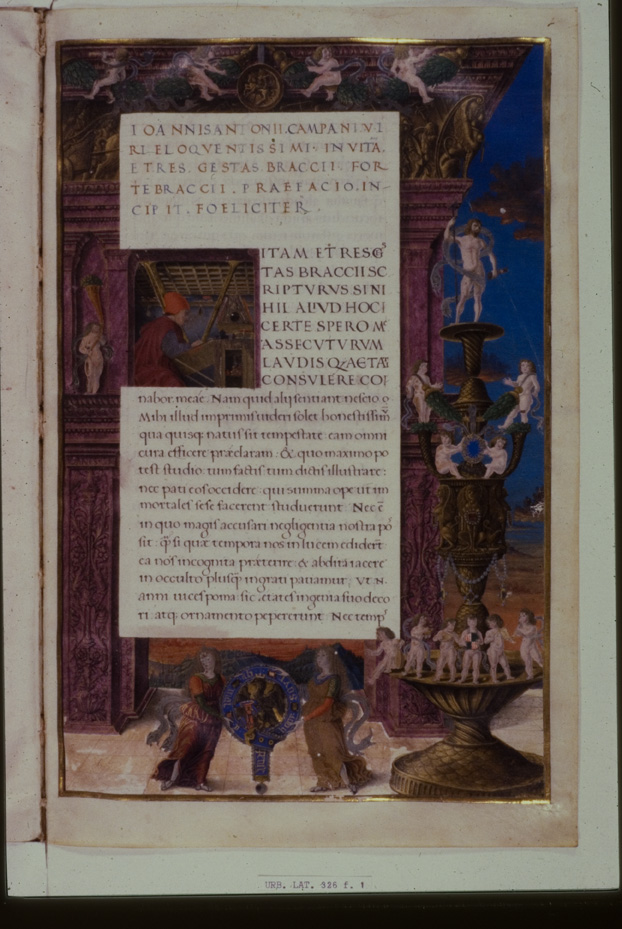 IOANNIS ANTONII. CAMPANI. VI
RI ELOQVENTISSIMI. IN VITA,
ET RES. GESTAS. BRACCII. FOR
TEBRACCII. PRAEFACIO. IN-
CIPIT. FOELICITER.
ITAM ET RES GˢS
TAS BRACCII SC
RIPTVRVS. SI NI
HIL ALIVD HOC I
CERTE SPERO
ASSECVTVRVM
LAVDIS
CONSVLERE COI
nabor. meae. Nam quid alij sentiant nescio
Mihi illud imprimis uideri solet honestissim̄
qua quisq; natus sit tempestate: eam omni
cura efficere praeclaram: & quo maximo po
test studio: tum factis tum dictis illustrare:
nec pati eos occidere: qui summa ope ut im
mortales sese facerent studuerunt. Nec ē
in quo magis accusari negligentia nostra
sit: si quae tempora nos in lucem
ea nos incognita praeterire: & abdita iacere
in occulto ingrati patiamur: Vt
anni uices poma: sic aetates ingenia suo deco
ri: atq; ornamento pepererunt. Nec
URB. LAT. 326 f. 1